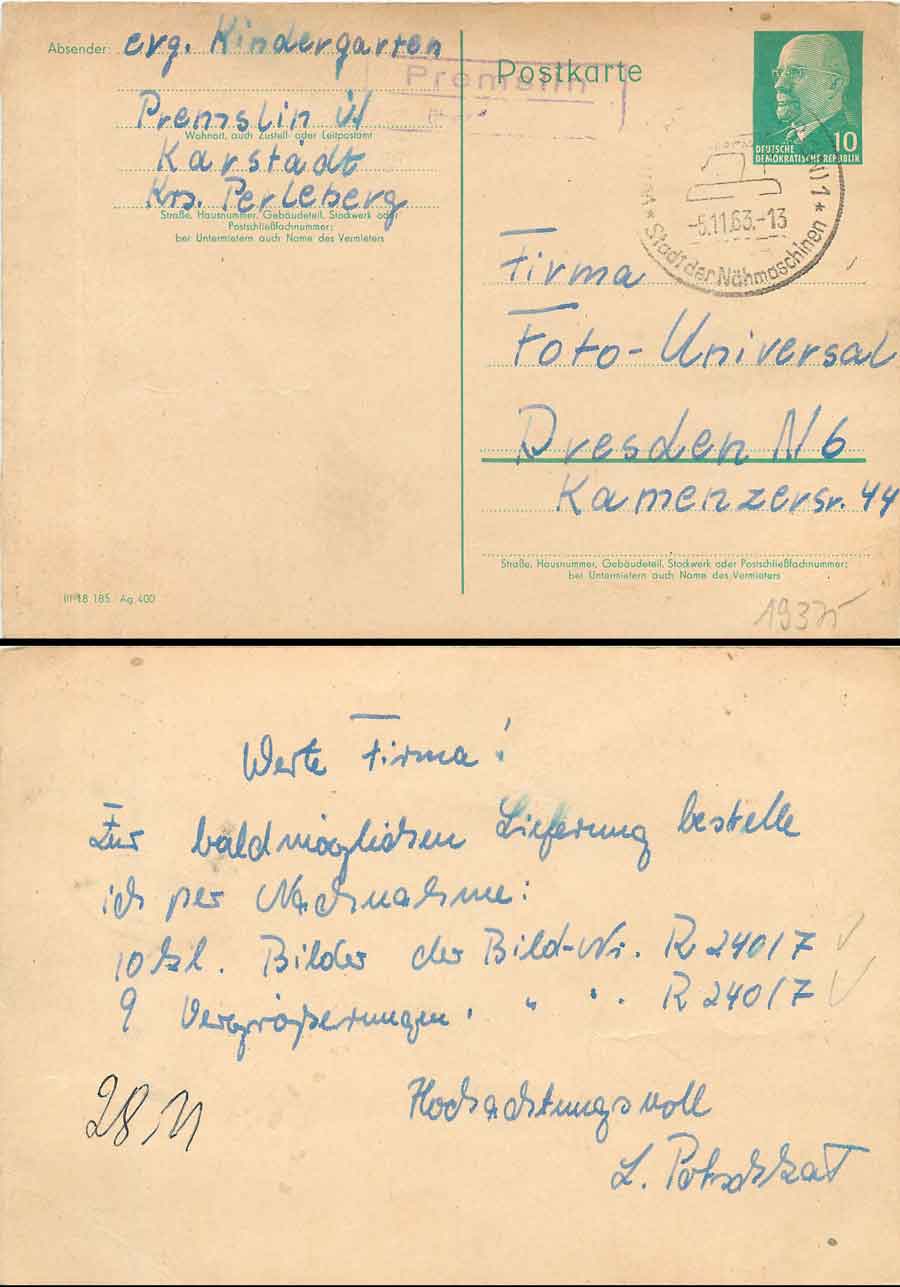 Absender: evg. Kindergarten
Premslin ü/
Wohnort, auch Zustell- oder Leitpostamt
Karstädt
Krs. Perleberg
Straße, Hausnummer, Gebäudeteil, Stockwerk oder
Postschließfachnummer;
bei Untermietern auch Name des Vermieters
Premslin
Postkarte
10
DEUTSCHE
DEMOKRATISCHE REPUBLIK
-5.11.63.-13
* Stadt der Nähmaschinen *
Firma
Foto-Universal
Dresden N 6
Kamenzerstr. 44
Straße, Hausnummer, Gebäudeteil, Stockwerk oder Postschließfachnummer;
bei Untermietern auch Name des Vermieters
III 18 185 Ag. 400
Werte Firma!
Zur baldmöglichen Lieferung bestelle
ich per Nachnahme:
10 kl. Bilder der Bild-Nr. R 2401 7
9 Vergrößerungen. " " . R 2401 7
Hochachtungsvoll
28.11
L.